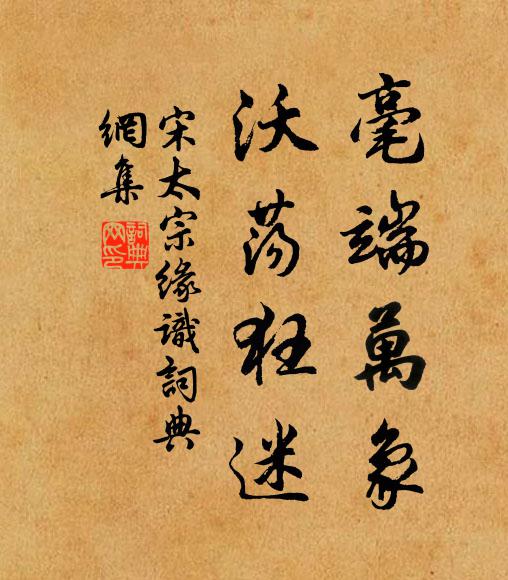 毫端萬象
沃荡狂迷
宋太宗緣識詞典
網集
詞典
网印